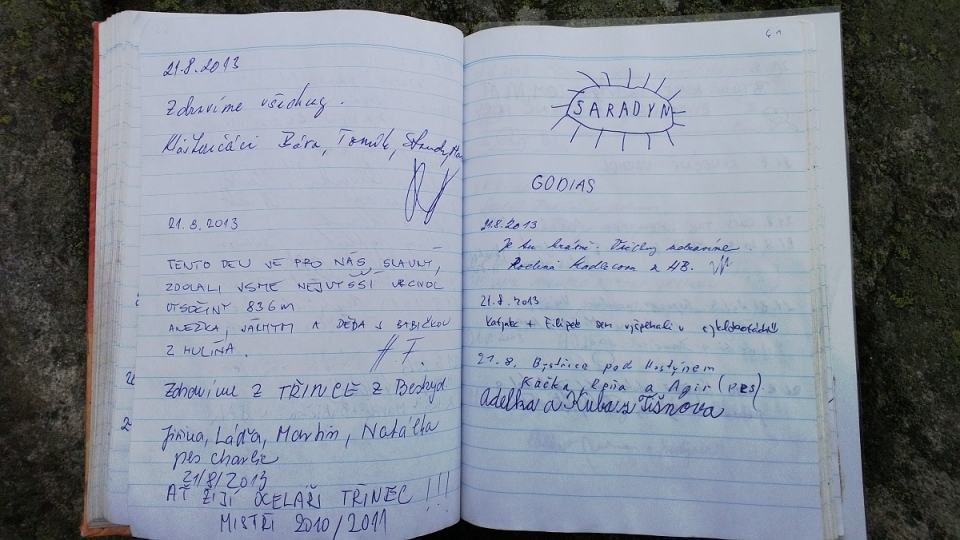 21.8.2013
Zdravíme všechny.
Bára, Tomík,
21.8.2013
TENTO DEN JE PRO NÁS SLAVNÝ,
ZDOLALI JSME NEJVYŠŠÍ VRCHOL
VYSOČINY 836 m
ANEŽKA, A DĚDA S BABIČKOU
Z HULÍNA.
Zdravíme z TŘINCE z Beskyd
Jiřina, Láďa, Martin, Natálka
pes Charlie
21/8/2013
AŤ ŽIJÍ OCELÁŘI TŘINEC !!!
MISTŘI 2010/2011
SARADYN
GODIAS
21.8.2013
Je tu krásně. Všechny zdravíme.
Rodina z HB.
21.8.2013
+ Filípek sem vyšpekali v
21.8. Bystřice pod Hostýnem
Kačka, a Agir (PES)
Adélka a Kuba z Tišnova